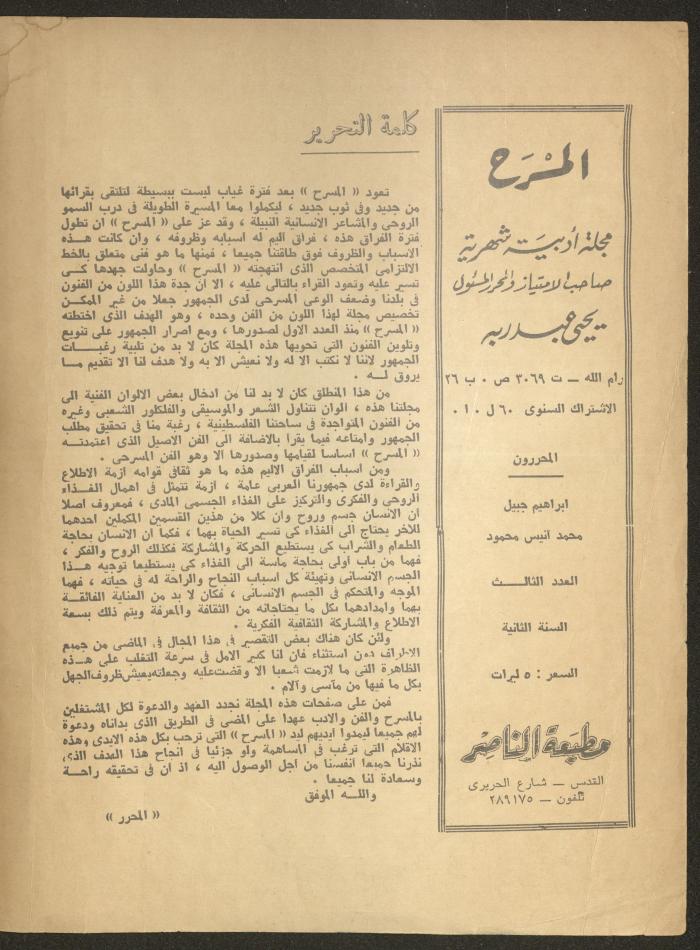 المسرح
مجلة أدبية شهرية
صاحب الامتياز والمحرر المسئول
يحيى عبد ربه
رام الله — ت ٣٠٦٩ ص ٠ ب ٢٦
الاشتراك السنوى ٦٠ ل ٠ ا ٠
المحررون
ابراهيم جبيل
محمد انيس محمود
العدد الثالـــث
السنة الثانية
السعر : ٥ ليرات
مطبعة الناصر
القدس — شارع الحريرى
تلفون — ٢٨٩١٧٥
كلمة التحرير
تعود « المسرح » بعد فترة غياب ليست ببسيطة لتلتقى بقرائها
من جديد وفى ثوب جديد ، ليكملوا معا المسيرة الطويلة فى درب السمو
الروحى والمشاعر الانسانية النبيلة ، وقد عز على « المسرح » ان تطول
فترة الفراق هذه ، فراق اليم له اسبابه وظروفه ، وان كانت هـــذه
الاسباب والظروف فوق طاقتنا جميعا ، فمنها ما هو فنى متعلق بالخط
الالتزامى المتخصص الذى انتهجته « المسرح » وحاولت جهدها كـــى
تسير عليه وتعود القراء بالتالى عليه ، الا ان جدة هذا اللون من الفنون
فى بلدنا وضعف الوعى المسرحى لدى الجمهور جعلا من غير الممكـــن
تخصيص مجلة لهذا اللون من الفن وحده ، وهو الهدف الذى اختطته
« المسرح » منذ العدد الاول لصدورها ، ومع اصرار الجمهور على تنويع
وتلوين الفنون التى تحويها هذه المجلة كان لا بد من تلبية رغبـــات
الجمهور لاننا لا نكتب الا له ولا نعيش الا به ولا هدف لنا الا تقديم مـــا
يروق لـــه .
من هذا المنطلق كان لا بد لنا من ادخال بعض الالوان الفنية الى
مجلتنا هذه ، الوان تتناول الشعر والموسيقى والفلكلور الشعبى وغيره
من الفنون المتواجدة فى ساحتنا الفلسطينية ، رغبة منا فى تحقيق مطلب
الجمهور وامتاعه فيما يقرا بالاضافة الى الفن الاصيل الذى اعتمدتـــه
« المسرح » اساسا لقيامها وصدورها الا وهو الفن المسرحى .
ومن اسباب الفراق الاليم هذه ما هو ثقافى قوامه ازمة الاطلاع
والقراءة لدى جمهورنا العربى عامة ، ازمة تتمثل فى اهمال الغـــذاء
الروحى والفكرى والتركيز على الغذاء الجسمى المادى ، فمعروف اصلا
ان الانسان جسم وروح وان كلا من هذين القسمين المكملين احدهما
للاخر يحتاج الى الغذاء كى تسير الحياة بهما ، فكما ان الانسان بحاجة
الطعام والشراب كى يستطيع الحركة والمشاركة فكذلك الروح والفكر ،
فهما من باب اولى بحاجة ماسة الى الغذاء كى يستطيعا توجيه هـــذا
الجسم الانسانى وتهيئة كل اسباب النجاح والراحة له فى حياته ، فهما
الموجه والمتحكم فى الجسم الانسانى ، فكان لا بد من العناية الفائقـــة
بهما وامدادهما بكل ما يحتاجانه من الثقافة والمعرفة ويتم ذلك بسعة
الاطلاع والمشاركة الثقافية الفكرية .
ولئن كان هناك بعض التقصير فى هذا المجال فى الماضى من جميع
الاطراف دون استثناء فان لنا كبير الامل فى سرعة التغلب على هـــذه
الظاهرة التى ما لازمت شعبا الا وقضت عليه وجعلته يعيش ظروف الجهل
بكل ما فيها من مآسى وآلام .
فمن على صفحات هذه المجلة نجدد العهد والدعوة لكل المشتغلين
بالمسرح والفن والادب عهدا على المضى فى الطريق الذى بداناه ودعوة
لهم جميعا ليمدوا ايديهم ليد « المسرح » التى ترحب بكل هذه الايدى وهذه
الاقلام التى ترغب فى المساهمة ولو جزئيا فى انجاح هذا الهدف الذى
نذرنا جميعا انفسنا من اجل الوصول اليه ، اذ ان فى تحقيقه راحـــة
وسعادة لنا جميعا .
واللـــه الموفق
« المحرر »